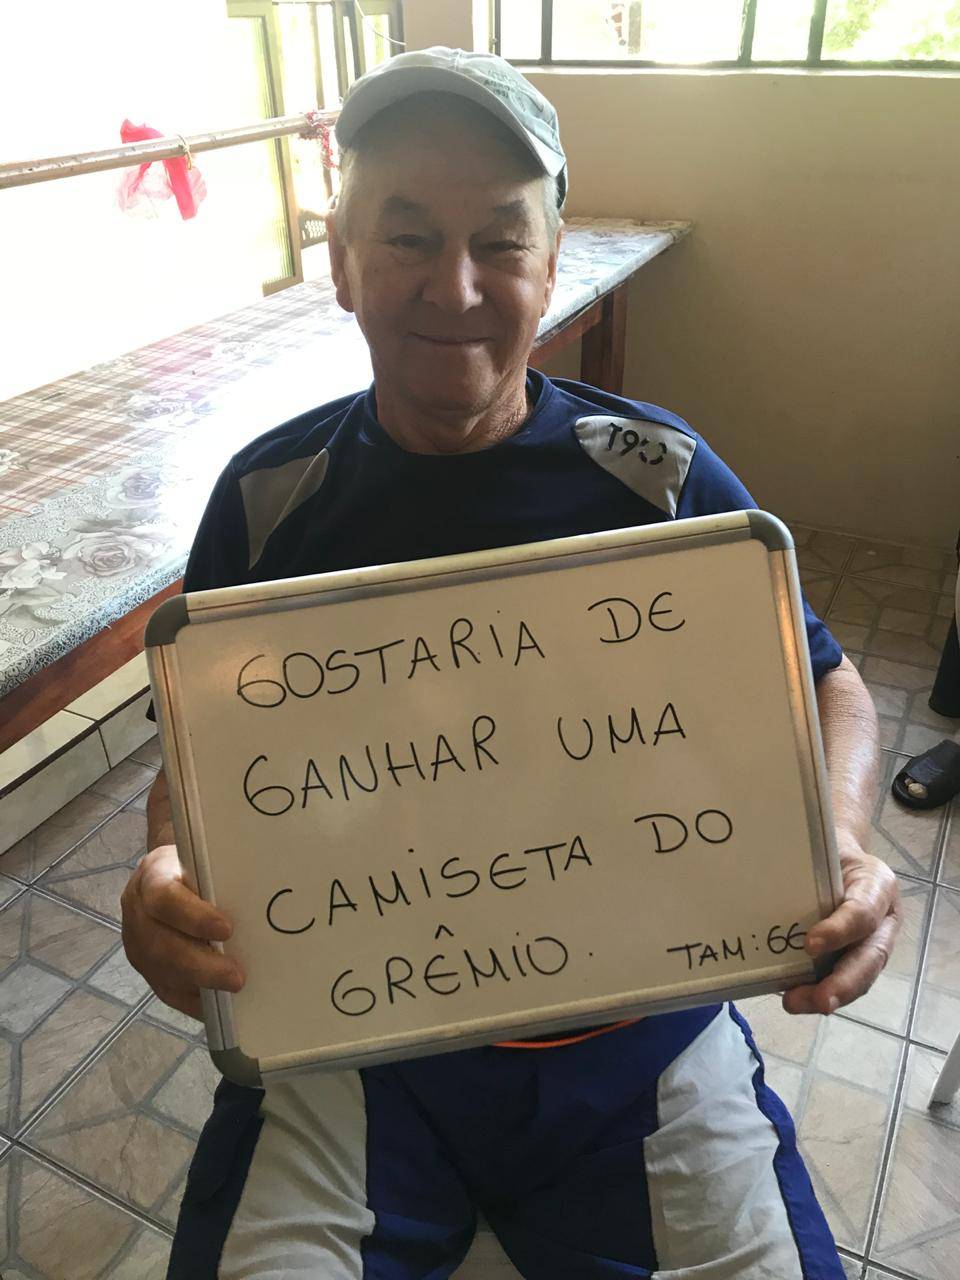 T90
GOSTARIA DE
GANHAR UMA
CAMISETA DO
GRÊMIO. TAM: GG